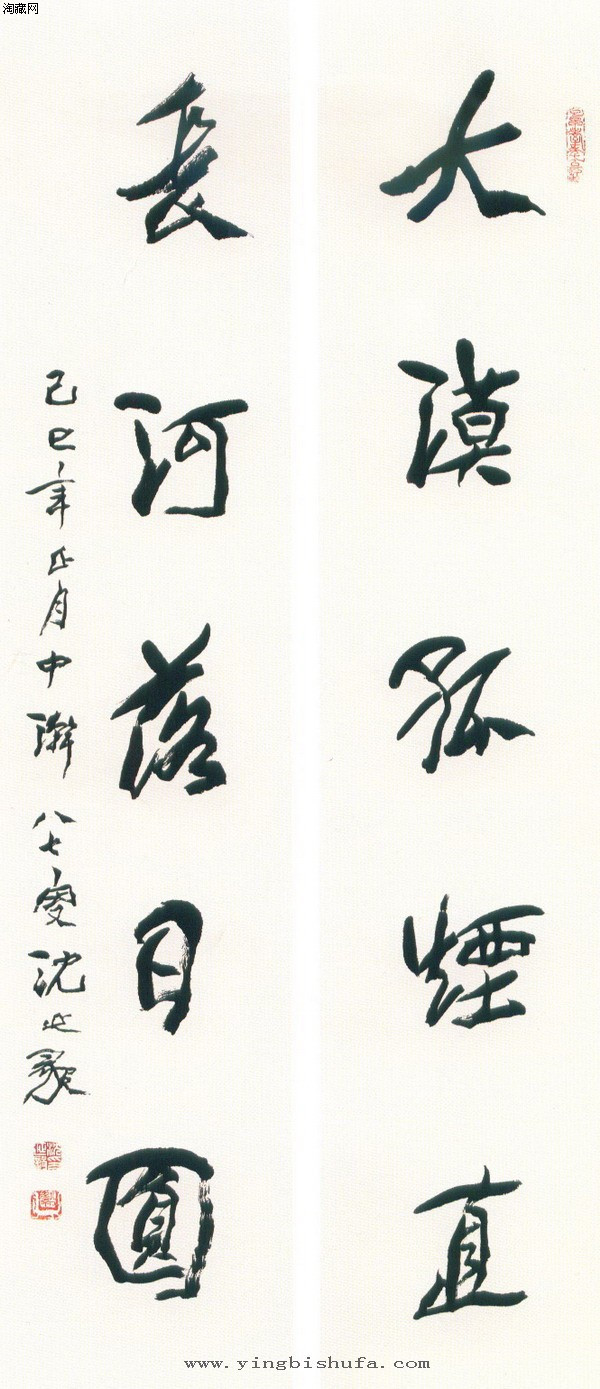 淘藏网
大漠孤煙直
長河落日圓
己巳年正月中瀚八七叟沈延毅
www.yingbishufa.com